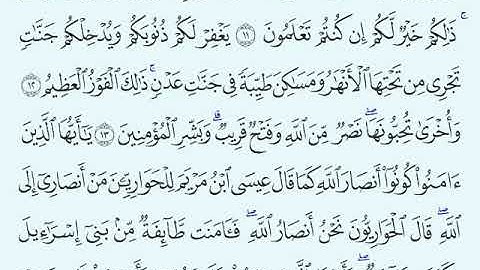 ذَٰلِكُمْ خَيْرٌ لَّكُمْ إِن كُنتُمْ تَعْلَمُونَ ١١ يَغْفِرْ لَكُمْ ذُنُوبَكُمْ وَيُدْخِلْكُمْ جَنَّاتٍ
تَجْرِى مِن تَحْتِهَا الْأَنْهَارُ وَمَسَاكِنَ طَيِّبَةً فِى جَنَّاتِ عَدْنٍ ۚ ذَٰلِكَ الْفَوْزُ الْعَظِيمُ ١٢
وَأُخْرَىٰ تُحِبُّونَهَا ۖ نَصْرٌ مِّنَ اللَّهِ وَفَتْحٌ قَرِيبٌ ۗ وَبَشِّرِ الْمُؤْمِنِينَ ١٣ يَٰٓأَيُّهَا الَّذِينَ
ءَامَنُوا كُونُوٓا أَنصَارَ اللَّهِ كَمَا قَالَ عِيسَى ابْنُ مَرْيَمَ لِلْحَوَارِيِّۦنَ مَنْ أَنصَارِىٓ إِلَى
اللَّهِ ۖ قَالَ الْحَوَارِيُّونَ نَحْنُ أَنصَارُ اللَّهِ ۖ فَـَٔامَنَت طَّآئِفَةٌ مِّنۢ بَنِىٓ إِسْرَٰٓءِيلَ